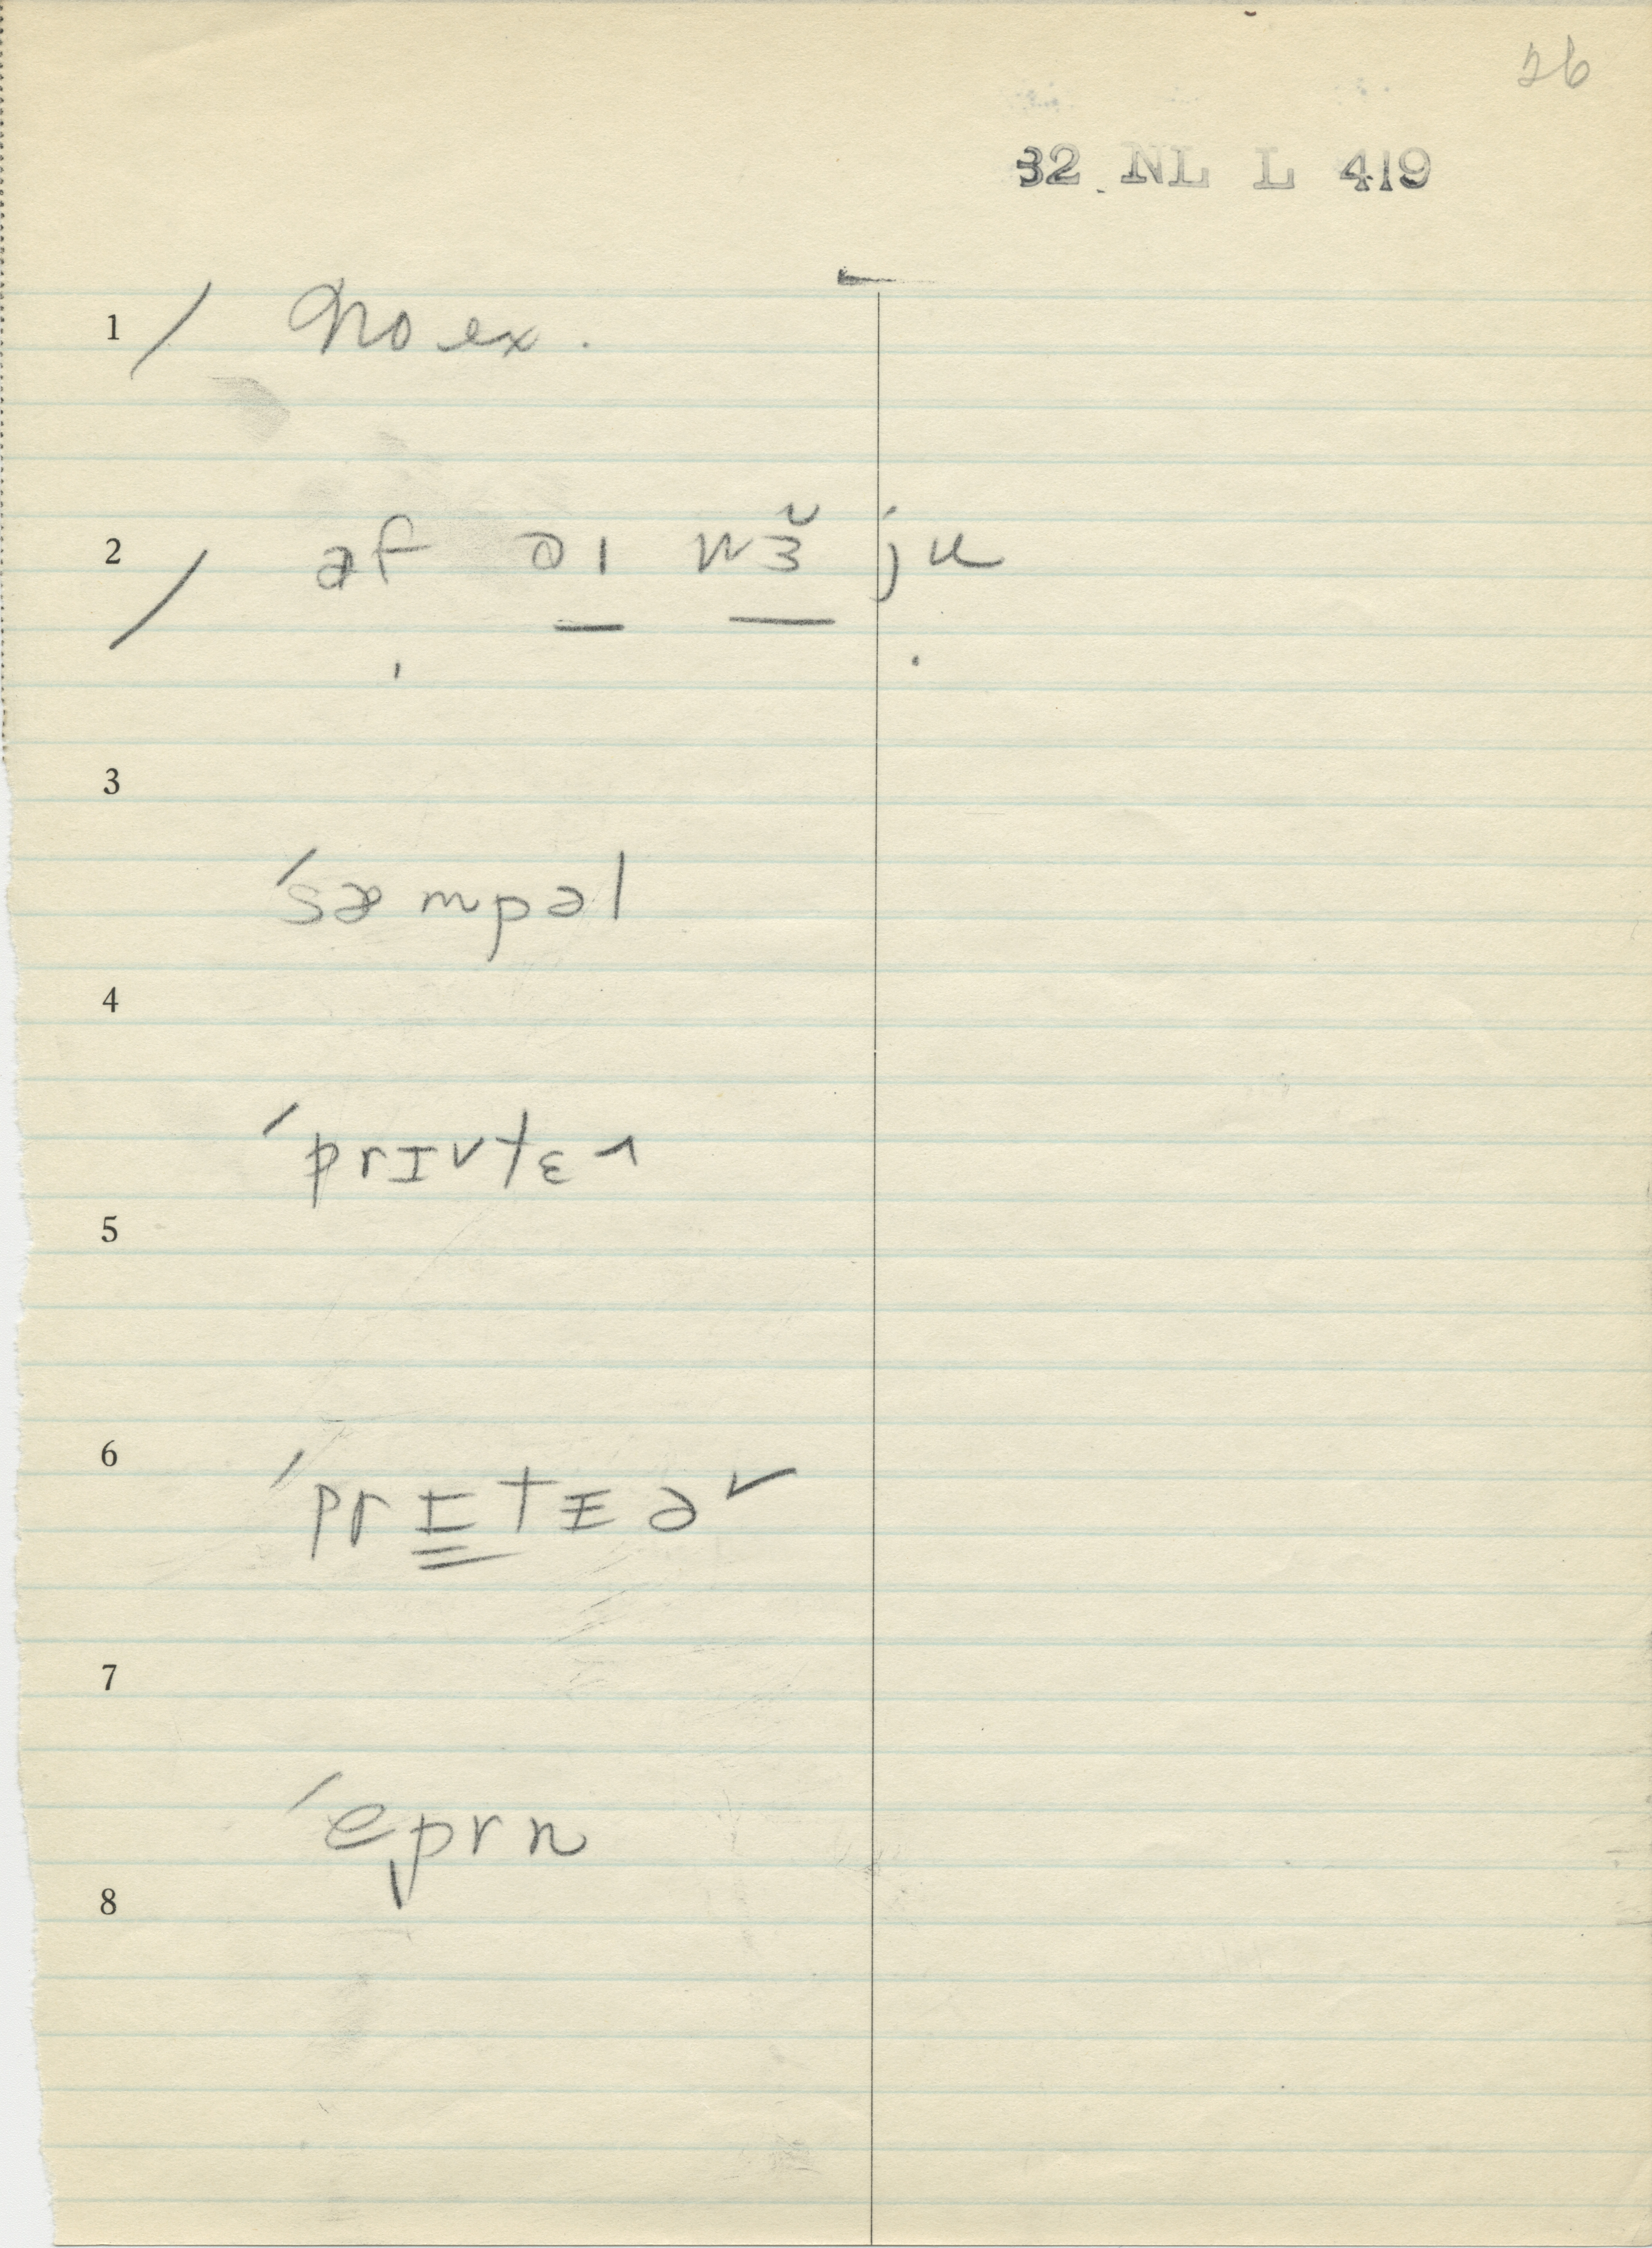 26
32 NL L 419
1 / No ex.
2 / əf əı wɜ̆ ju
3
ˈsæmpəl
4
ˈprɪvtɛ^
5
6
ˈprɪtɪə˅
7
ˈeprn
8